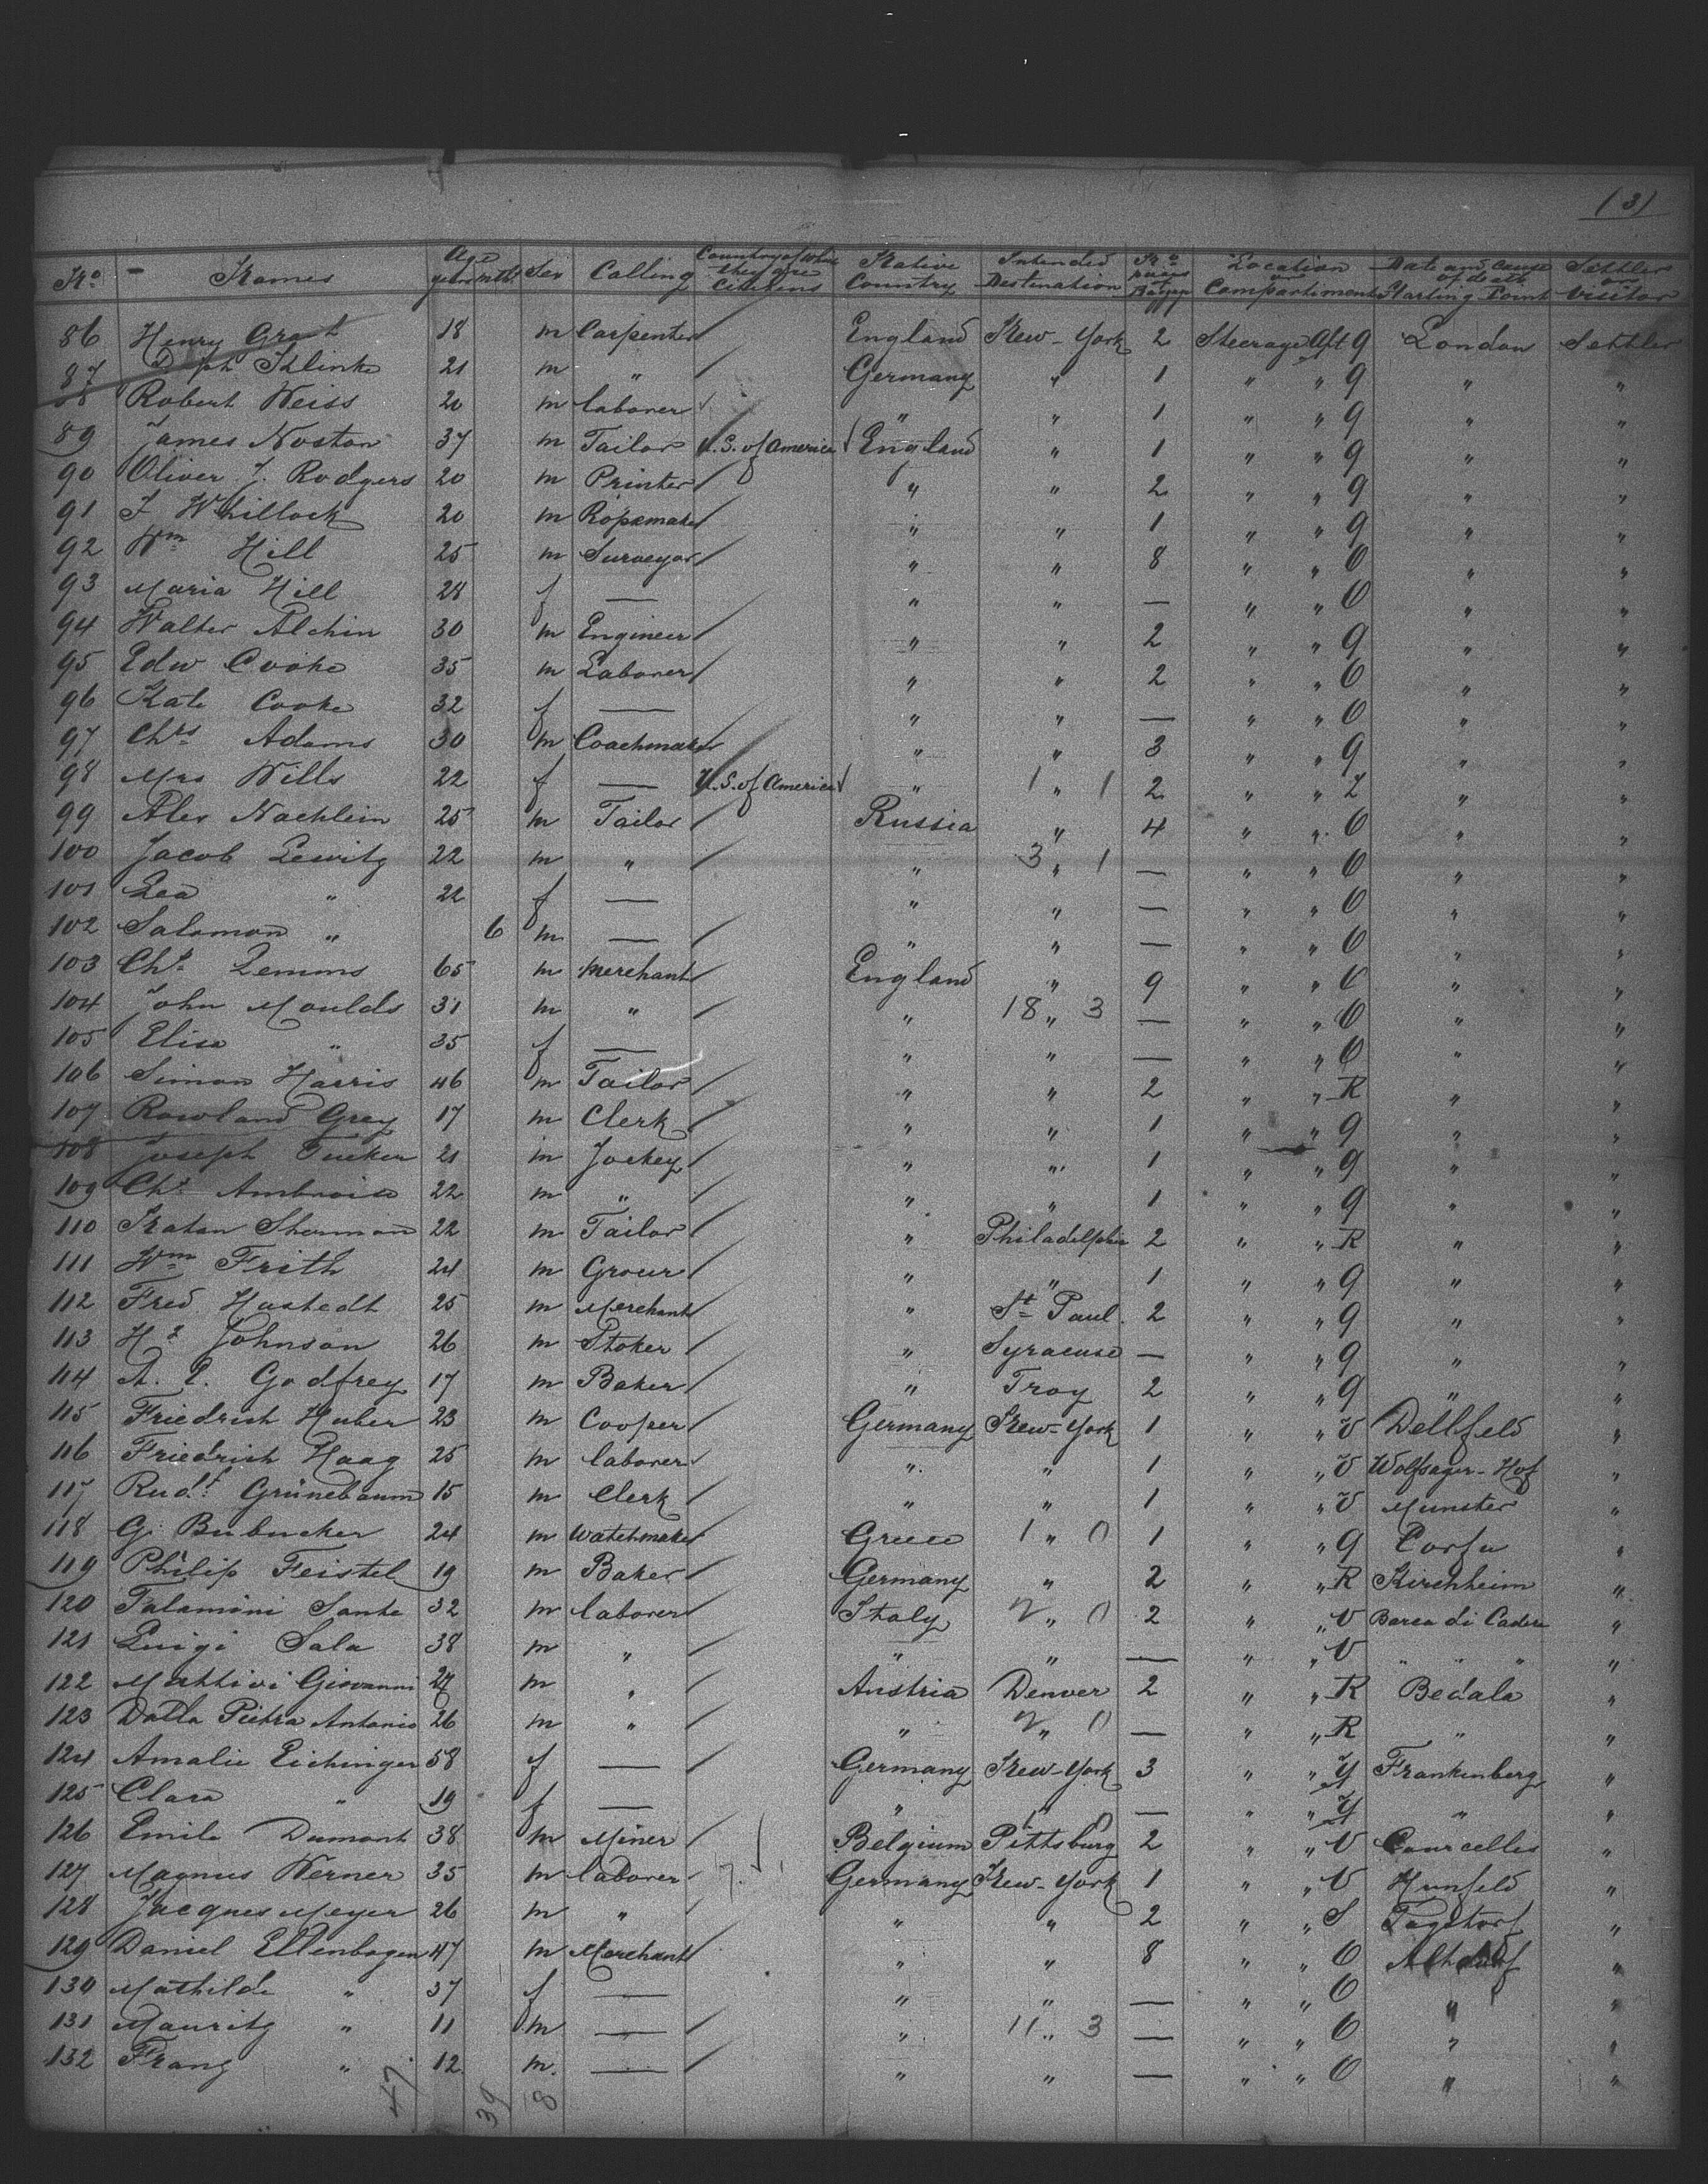 (3)
No Names Age years mths Sex Calling Country of which they are citizens Native Country Intended Destination No pieces Bagge Location or Compartiment Date and cause of death Starting Point Settler or Visitor
86 Henry Grant 18 m Carpenter England New-York 2 Steerage Aft 9 London Settler
87 Klinke 21 m " Germany " 1 " " 9 " "
88 Robert Weiss 20 m laborer " " 1 " " 9 " "
89 James Noston 37 m Tailor U.S. of America England " 1 " " 9 " "
90 Oliver J. Rodgers 20 m Printer " " 2 " " 9 " "
91 J Whillock 20 m Ropemaker " " 1 " " 9 " "
92 Wm Hill 25 m Surveyor " " 8 " " O " "
93 Maria Hill 28 f — " " — " " O " "
94 Walter Alchin 30 m Engineer " " 2 " " 9 " "
95 Edw Cooke 35 m Laborer " " 2 " " O " "
96 Kate Cooke 32 f — " " — " " O " "
97 Chrs Adams 30 m Coachmaker " " 3 " " 9 " "
98 Mrs Wills 22 f — U.S. of America " 1 " 1 2 " " Z " "
99 Alex Nachlein 25 m Tailor Russia " 4 " " O " "
100 Jacob Lewitz 22 m " " 3 " 1 — " " O " "
101 Lea " 22 f — " " — " " O " "
102 Salomon " 6 m — " " — " " O " "
103 Chs Lemms 65 m Merchant England " 9 " " O " "
104 John Moulds 31 m " " 18 " 3 — " " O " "
105 Elisa " 35 f — " " — " " O " "
106 Simon Harris 46 m Tailor " " 2 " " R " "
107 Rowland Grey 17 m Clerk " " 1 " " 9 " "
108 Joseph Tucker 21 m Jockey " " 1 " " 9 " "
109 Chs Ambroise 22 m " " " 1 " " 9 " "
110 Natan Sherman 22 m Tailor " Philadelphia 2 " " R " "
111 Wm Frith 24 m Grocer " " 1 " " 9 " "
112 Fred. Hastedt 25 m Merchant " St Paul. 2 " " 9 " "
113 Hy Johnson 26 m Stoker " Syracuse — " " 9 " "
114 A. P. Godfrey 17 m Baker " Troy 2 " " 9 " "
115 Friedrich Huber 23 m Cooper Germany New-York 1 " " V Dellfeld "
116 Friedrich Haag 25 m laborer " " 1 " " V Wolfsager-Hof "
117 Rudlf Grünebaum 15 m Clerk " " 1 " " V Munster "
118 G. Bubucker 24 m Watchmaker Greece 1 " 0 1 " " 9 Corfu "
119 Philip Feistel 19 m Baker Germany " 2 " " R Kirchheim "
120 Talamini Sante 32 m laborer Italy 2 " 0 2 " " V Borca di Cadore "
121 Luigi Sala 38 m " " " — " " V " " " "
122 Mattivi Giovanni 24 m " Austria Denver 2 " " R Bedala "
123 Dalla Pietra Antonio 26 m " " 2 " 0 — " " R " "
124 Amalie Eichinger 58 f — Germany New-York 3 " " Y Frankenberg "
125 Clara " 19 f — " " — " " Y " "
126 Emile Dumont 38 m Miner Belgium Pittsburg 2 " " V Courcelles "
127 Magnus Werner 35 m laborer Germany New-York 1 " " V Hunfeld "
128 Jacques Meyer 26 m " " " 2 " " S "
129 Daniel Ellenbogen 47 m Merchant " " 8 " " O "
130 Mathilde " 37 f — " " — " " O " "
131 Mauritz " 11 m — " 11 " 3 — " " O " "
132 Franz " 12 m. — " " — " " O " "
47. 39 8